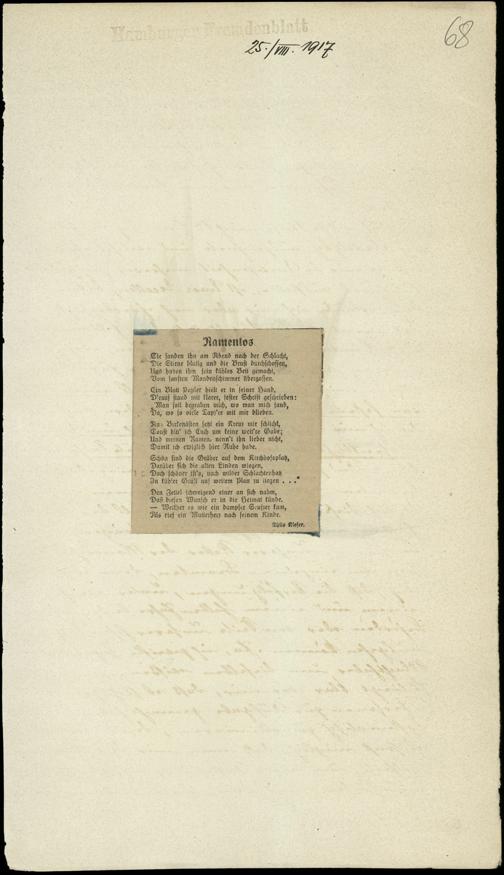 Hamburger Fremdenblatt
68
25./VIII. 1917
Namenlos
Sie fanden ihn am Abend nach der Schlacht,
Die Stirne blutig und die Brust durchschossen,
Und haben ihm sein kühles Bett gemacht,
Vom sanften Mondenschimmer übergossen.
Ein Blatt Papier hielt er in seiner Hand,
D'rauf stand mit klarer, fester Schrift geschrieben:
"Man soll begraben mich, wo man mich fand,
Da, wo so viele Tapf're mit mir blieben.
Aus Birkenästen setzt ein Kreuz mir schlicht,
Sonst bitt' ich Euch um keine weit're Gabe;
Und meinen Namen nenn't ihn lieber nicht,
Damit ich ewiglich hier Ruhe habe.
Schön sind die Gräber auf dem Kirchhofsplatz,
Darüber sich die alten Linden wiegen,
Doch schöner ist's, nach wilder Schlachtenhatz
In kühler Gruft auf weitem Plan zu liegen . . ."
Den Zettel schweigend einer an sich nahm,
Daß diesen Wunsch er in die Heimat künde.
— Weither es wie ein dumpfer Seufzer kam,
Als rief ein Mutterherz nach seinem Kinde.
Kieser.